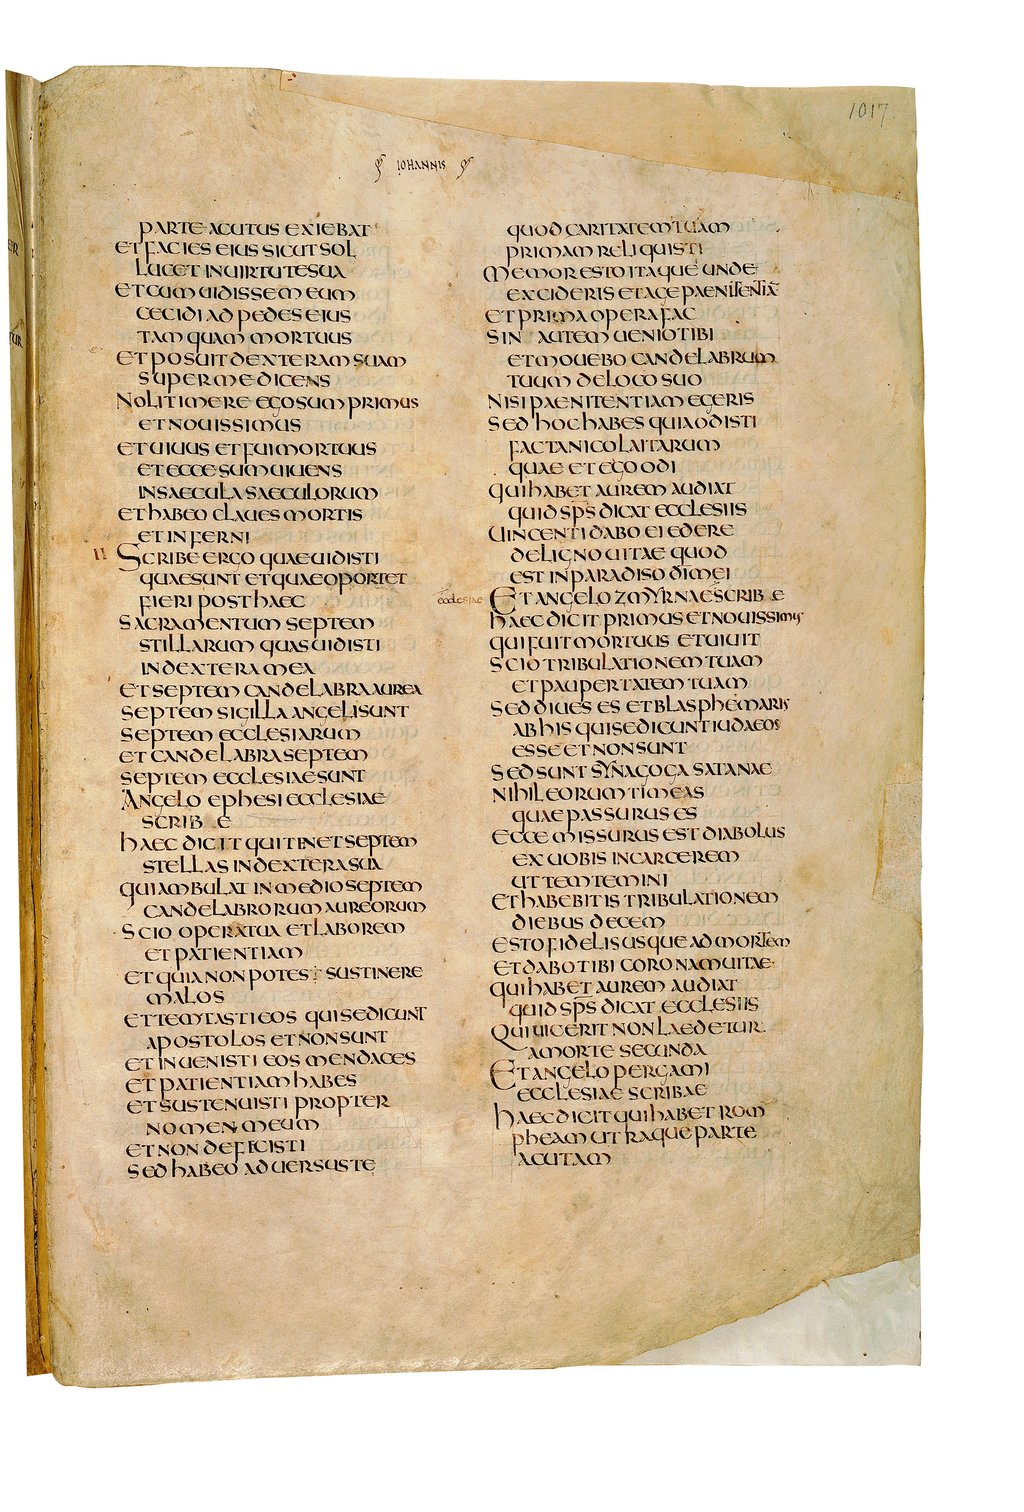 1017
IOHANNIS
PARTE ACUTUS EXIEBAT
ET FACIES EIUS SICUT SOL
LUCET IN UIRTUTE SUA
ET CUM UIDISSEM EUM
CECIDI AD PEDES EIUS
TAMQUAM MORTUUS
ET POSUIT DEXTERAM SUAM
SUPER ME DICENS
NOLI TIMERE EGO SUM PRIMUS
ET NOUISSIMUS
ET UIUUS ET FUI MORTUUS
ET ECCE SUM UIUENS
IN SAECULA SAECULORUM
ET HABEO CLAUES MORTIS
ET INFERNI
II SCRIBE ERGO QUAE UIDISTI
QUAE SUNT ET QUAE OPORTET
FIERI POST HAEC
SACRAMENTUM SEPTEM
STILLARUM QUAS UIDISTI
IN DEXTERA MEA
ET SEPTEM CANDELABRA AUREA
SEPTEM SIGILLA ANGELI SUNT
SEPTEM ECCLESIARUM
ET CANDELABRA SEPTEM
SEPTEM ECCLESIAE SUNT
ANGELO EPHESI ECCLESIAE
SCRIB E
HAEC DICIT QUI TENET SEPTEM
STELLAS IN DEXTERA SUA
QUI AMBULAT IN MEDIO SEPTEM
CANDELABRORUM AUREORUM
SCIO OPERA TUA ET LABOREM
ET PATIENTIAM
ET QUIA NON POTES SUSTINERE
MALOS
ET TEMTASTI EOS QUI SE DICUNT
APOSTOLOS ET NON SUNT
ET INUENISTI EOS MENDACES
ET PATIENTIAM HABES
ET SUSTENUISTI PROPTER
NOMEN MEUM
ET NON DEFICISTI
SED HABEO ADUERSUS TE
QUOD CARITATEM TUAM
PRIMAM RELIQUISTI
MEMOR ESTO ITAQUE UNDE
EXCIDERIS ET AGE PAENITENTIĀ
ET PRIMA OPERA FAC
SIN AUTEM UENIO TIBI
ET MOUEBO CANDELABRUM
TUUM DE LOCO SUO
NISI PAENITENTIAM EGERIS
SED HOC HABES QUIA ODISTI
FACTA NICOLAITARUM
QUAE ET EGO ODI
QUI HABET AUREM AUDIAT
QUID SP̄S DICAT ECCLESIIS
UINCENTI DABO EI EDERE
DE LIGNO UITAE QUOD
EST IN PARADISO DĪ MEI
ecclesiae ET ANGELO ZMYRNAE SCRIB E
HAEC DICIT PRIMUS ET NOUISSIMUS
QUI FUIT MORTUUS ET UIUIT
SCIO TRIBULATIONEM TUAM
ET PAUPERTATEM TUAM
SED DIUES ES ET BLASPHEMARIS
AB HIS QUI SE DICUNT IUDAEOS
ESSE ET NON SUNT
SED SUNT SYNAGOGA SATANAE
NIHIL EORUM TIMEAS
QUAE PASSURUS ES
ECCE MISSURUS EST DIABOLUS
EX UOBIS IN CARCEREM
UT TEMTEMINI
ET HABEBITIS TRIBULATIONEM
DIEBUS DECEM
ESTO FIDELIS USQUE AD MORTEM
ET DABO TIBI CORONAM UITAE
QUI HABET AUREM AUDIAT
QUID SP̄S DICAT ECCLESIIS
QUI UICERIT NON LAEDETUR
A MORTE SECUNDA
ET ANGELO PERGAMI
ECCLESIAE SCRIBAE
HAEC DICIT QUI HABET ROM
PHEAM UTRAQUE PARTE
ACUTAM